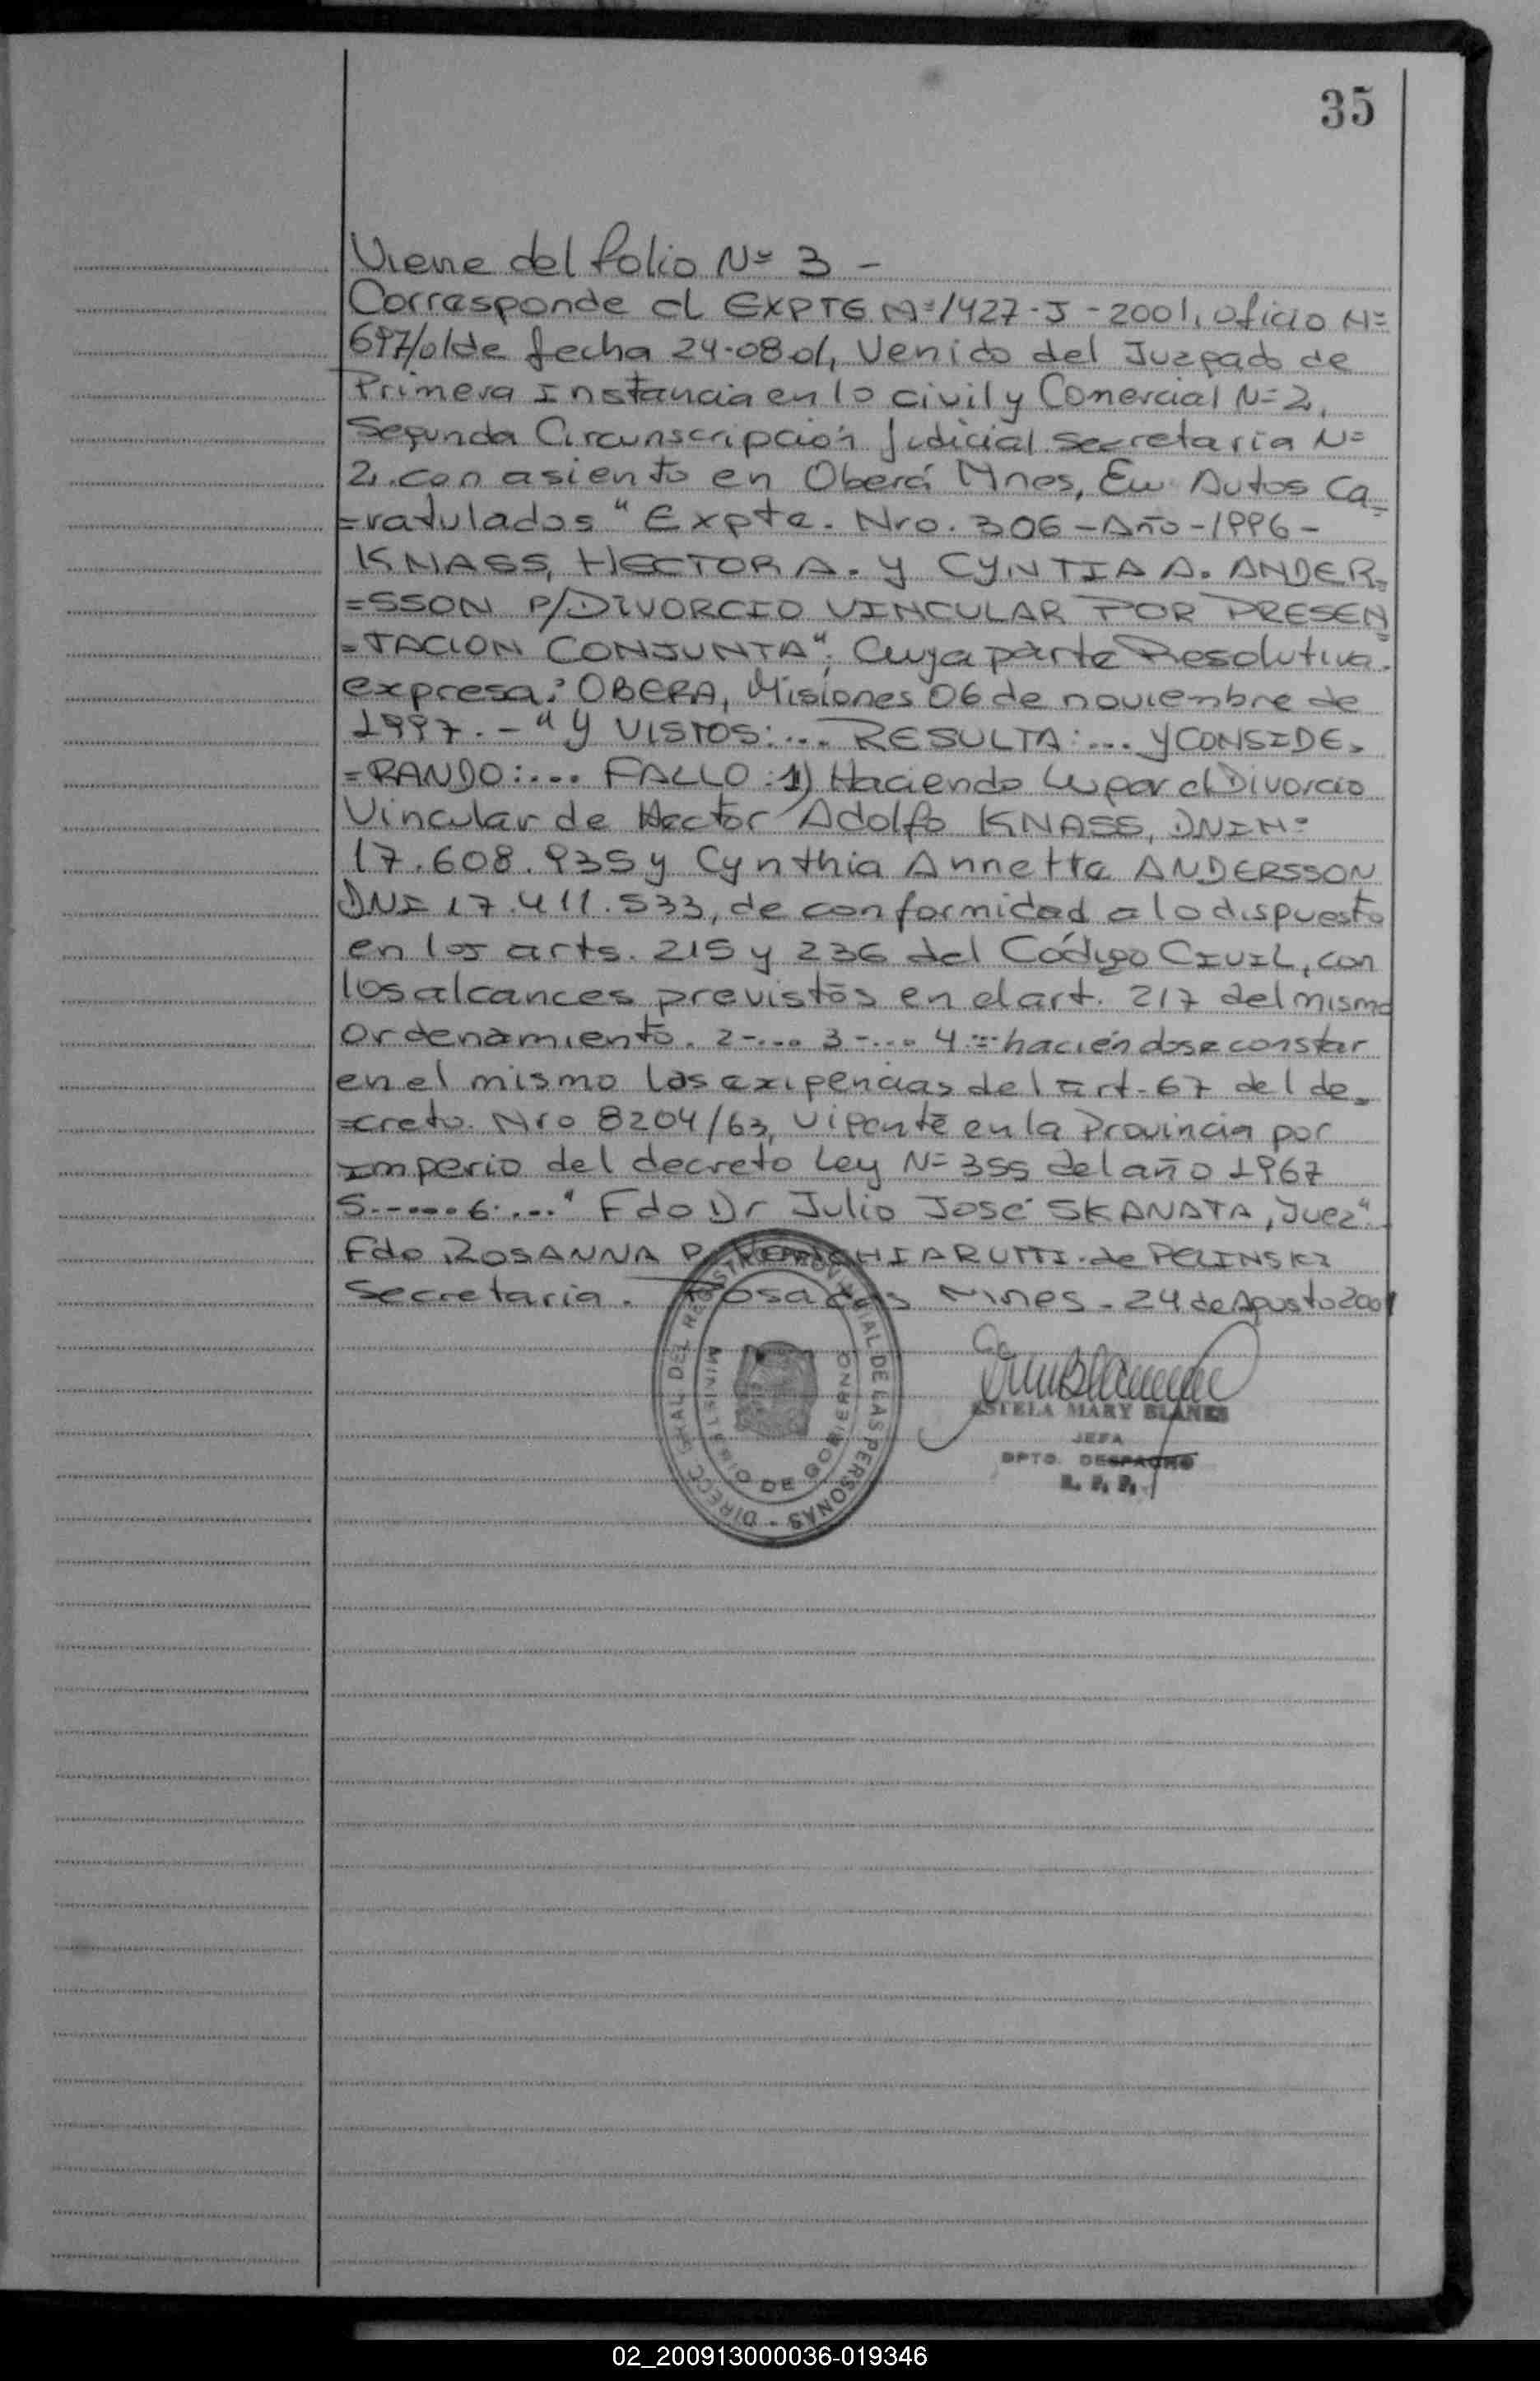 35
Viene del folio Nº 3 -
Corresponde al EXPTE Nº 1427-J-2001, oficio Nº
697/01 de fecha 24-08-01, Venido del Juzgado de
Primera Instancia en lo civil y Comercial Nº 2,
Segunda Circunscripción Judicial Secretaria Nº
2, con asiento en Oberá Mnes, En Autos Ca=
=ratulados "Expte. Nro. 306-Año-1996-
KNASS, HECTOR A. y CYNTIA A. ANDER=
=SSON P/DIVORCIO VINCULAR POR PRESEN=
=TACION CONJUNTA", Cuya parte Resolutiva
expresa: OBERA, Misiones 06 de noviembre de
1997.- "Y VISTOS:... RESULTA:... Y CONSIDE=
=RANDO:... FALLO: 1) Haciendo lugar al Divorcio
Vincular de Hector Adolfo KNASS, DNI Nº
17.608.935 y Cynthia Annette ANDERSSON
DNI 17.411.533, de conformidad a lo dispuesto
en los arts. 215 y 236 del Código CIVIL, con
los alcances previstos en el art. 217 del mismo
Ordenamiento. 2-... 3-... 4-... haciéndose constar
en el mismo las exigencias del art. 67 del de=
=creto Nro 8204/63, vigente en la Provincia por
Imperio del decreto Ley Nº 355 del año 1967
5...... 6...." Fdo Dr Julio José SKANATA, Juez"
Fdo ROSANNA P. de PELINSKI
Secretaria. Posadas Mnes - 24 de Agosto 2001
DIRECC. GRAL. DEL REGISTRO PROVINCIAL DE LAS PERSONAS -
MINISTERIO DE GOBIERNO
ESTELA MARY BLANES
JEFA
DPTO. DESPACHO
R. P. P.
02_200913000036-019346